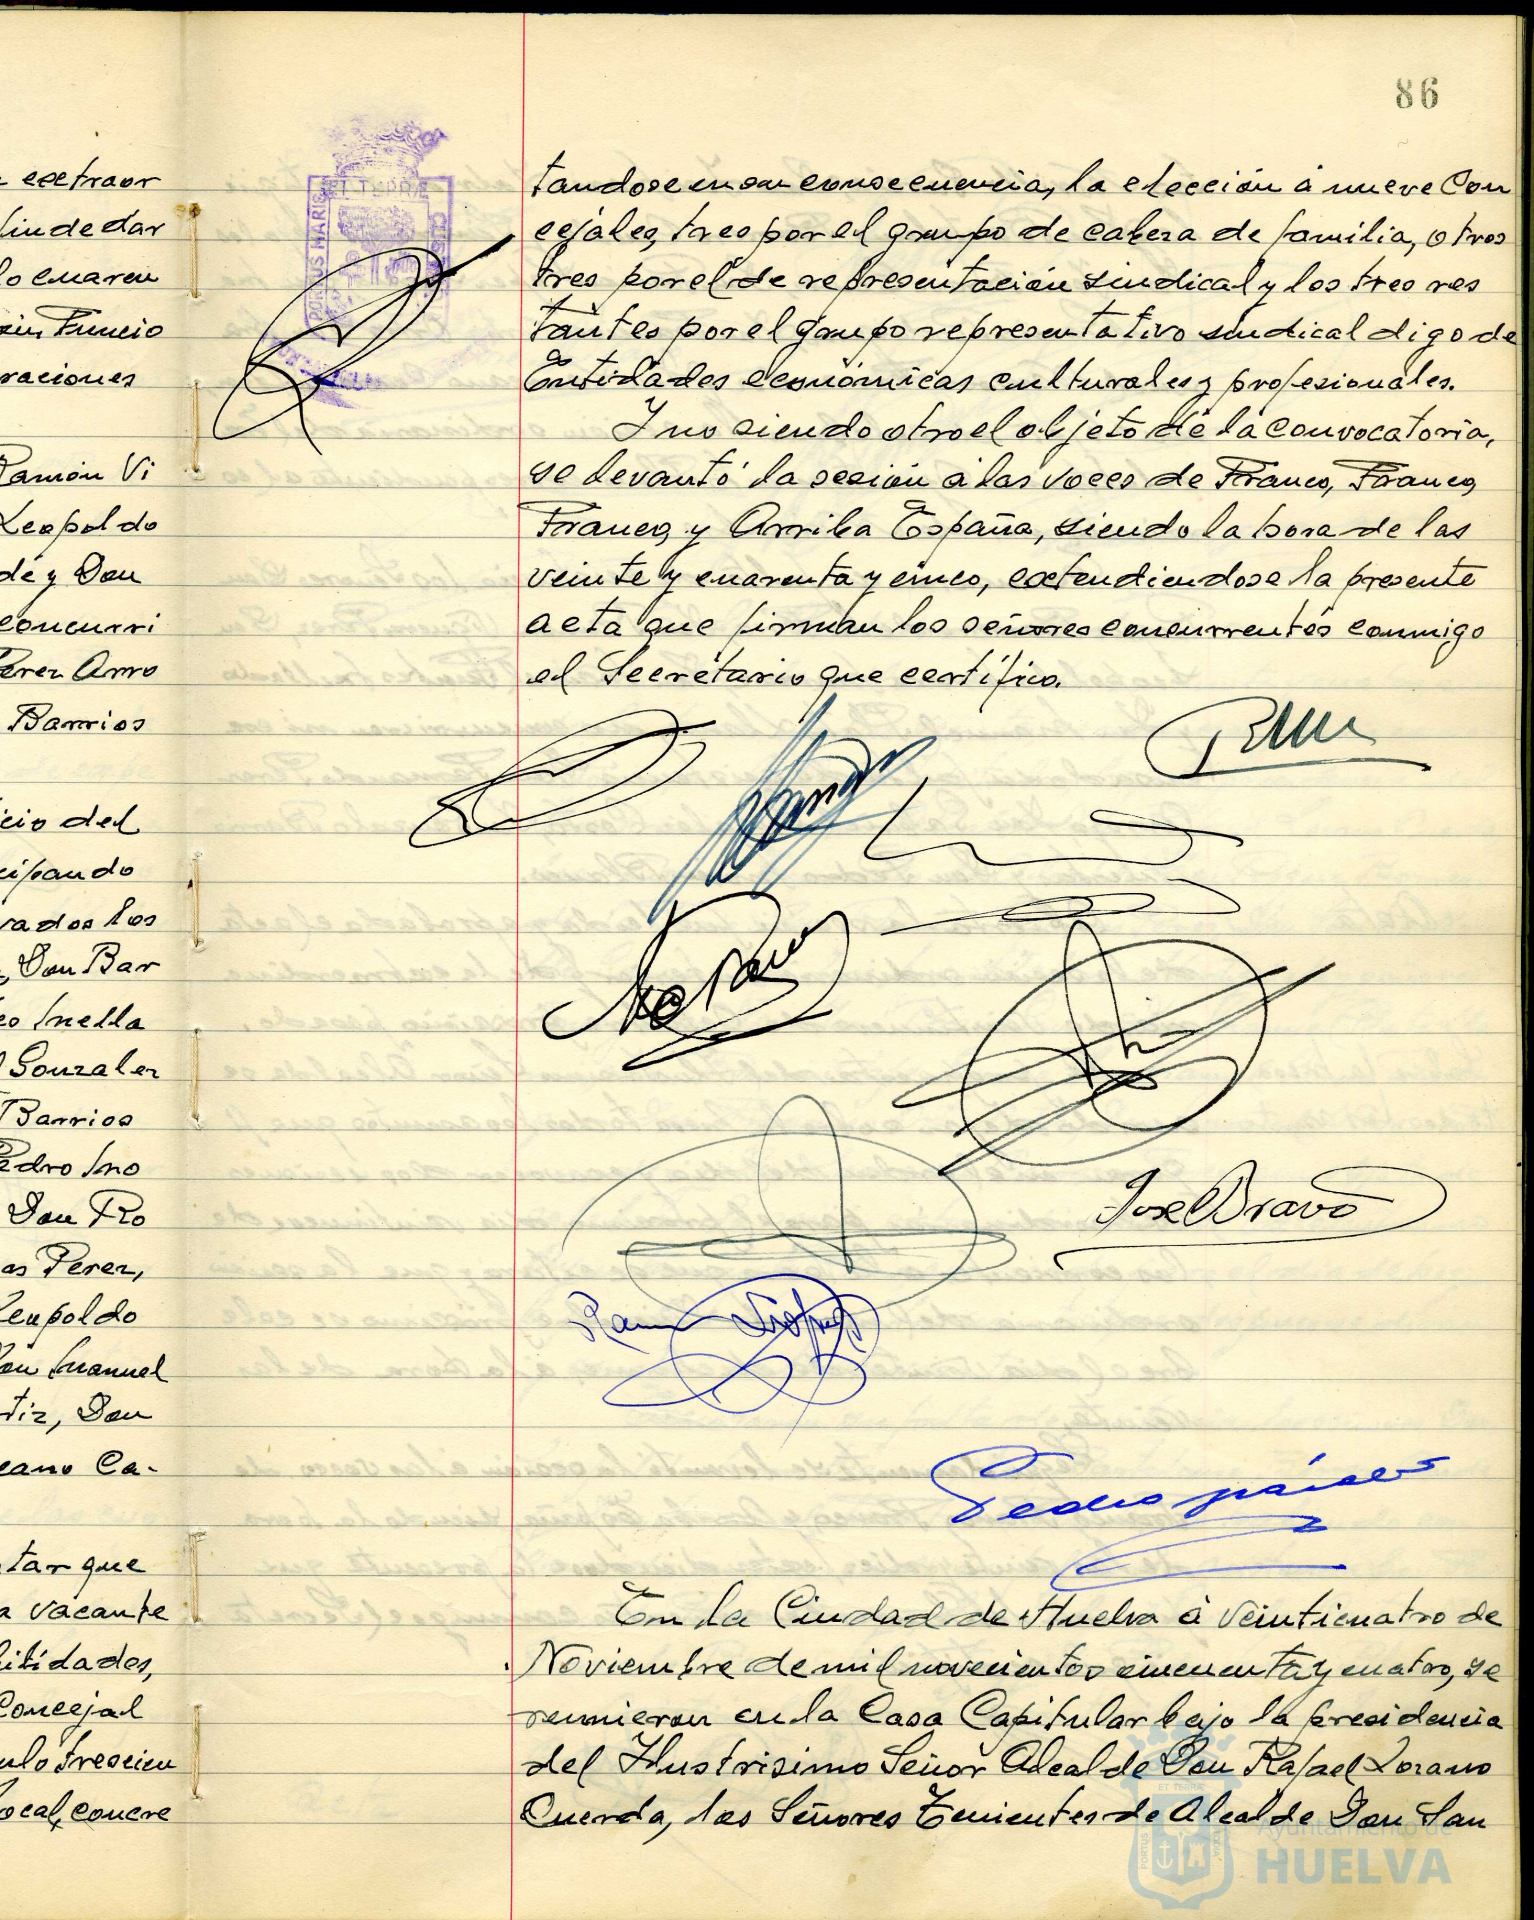 86
extraor
fin de dar
lo cuaren
Funcio
raciones
Ramón Vi
Leopoldo
dé y Don
concurri
Perez Arro
Barrios
cio del
cipando
vados los
Don Bar
Gonzalez
Barrios
Don Fro
as Perez,
Leopoldo
Don Manuel
tiz, Don
cano Ca-
tar que
a vacante
ilidades,
Concejal
ulo trescien
local, concre
tandose en su consecuencia, la elección á nueve Con
cejales, tres por el grupo de cabeza de familia, otros
tres por el de representación sindical y los tres res
tantes por el grupo representativo sindical digo de
Entidades económicas culturales y profesionales.
Y no siendo otro el objeto de la convocatoria,
se levantó la sesión á las voces de Franco, Franco,
Franco, y Arriba España, siendo la hora de las
veinte y cuarenta y cinco, extendiendose la presente
acta que firman los señores concurrentes conmigo
el Secretario que certifico.
José Bravo
Ramon
Pedro
En la Ciudad de Huelva á veinticuatro de
Noviembre de mil novecientos cincuenta y cuatro, se
reunieron en la Casa Capitular bajo la presidencia
del Ilustrisimo Señor Alcalde Don Rafael Lozano
Cuerda, los Señores Tenientes de Alcalde Don San
Ayuntamiento de
HUELVA